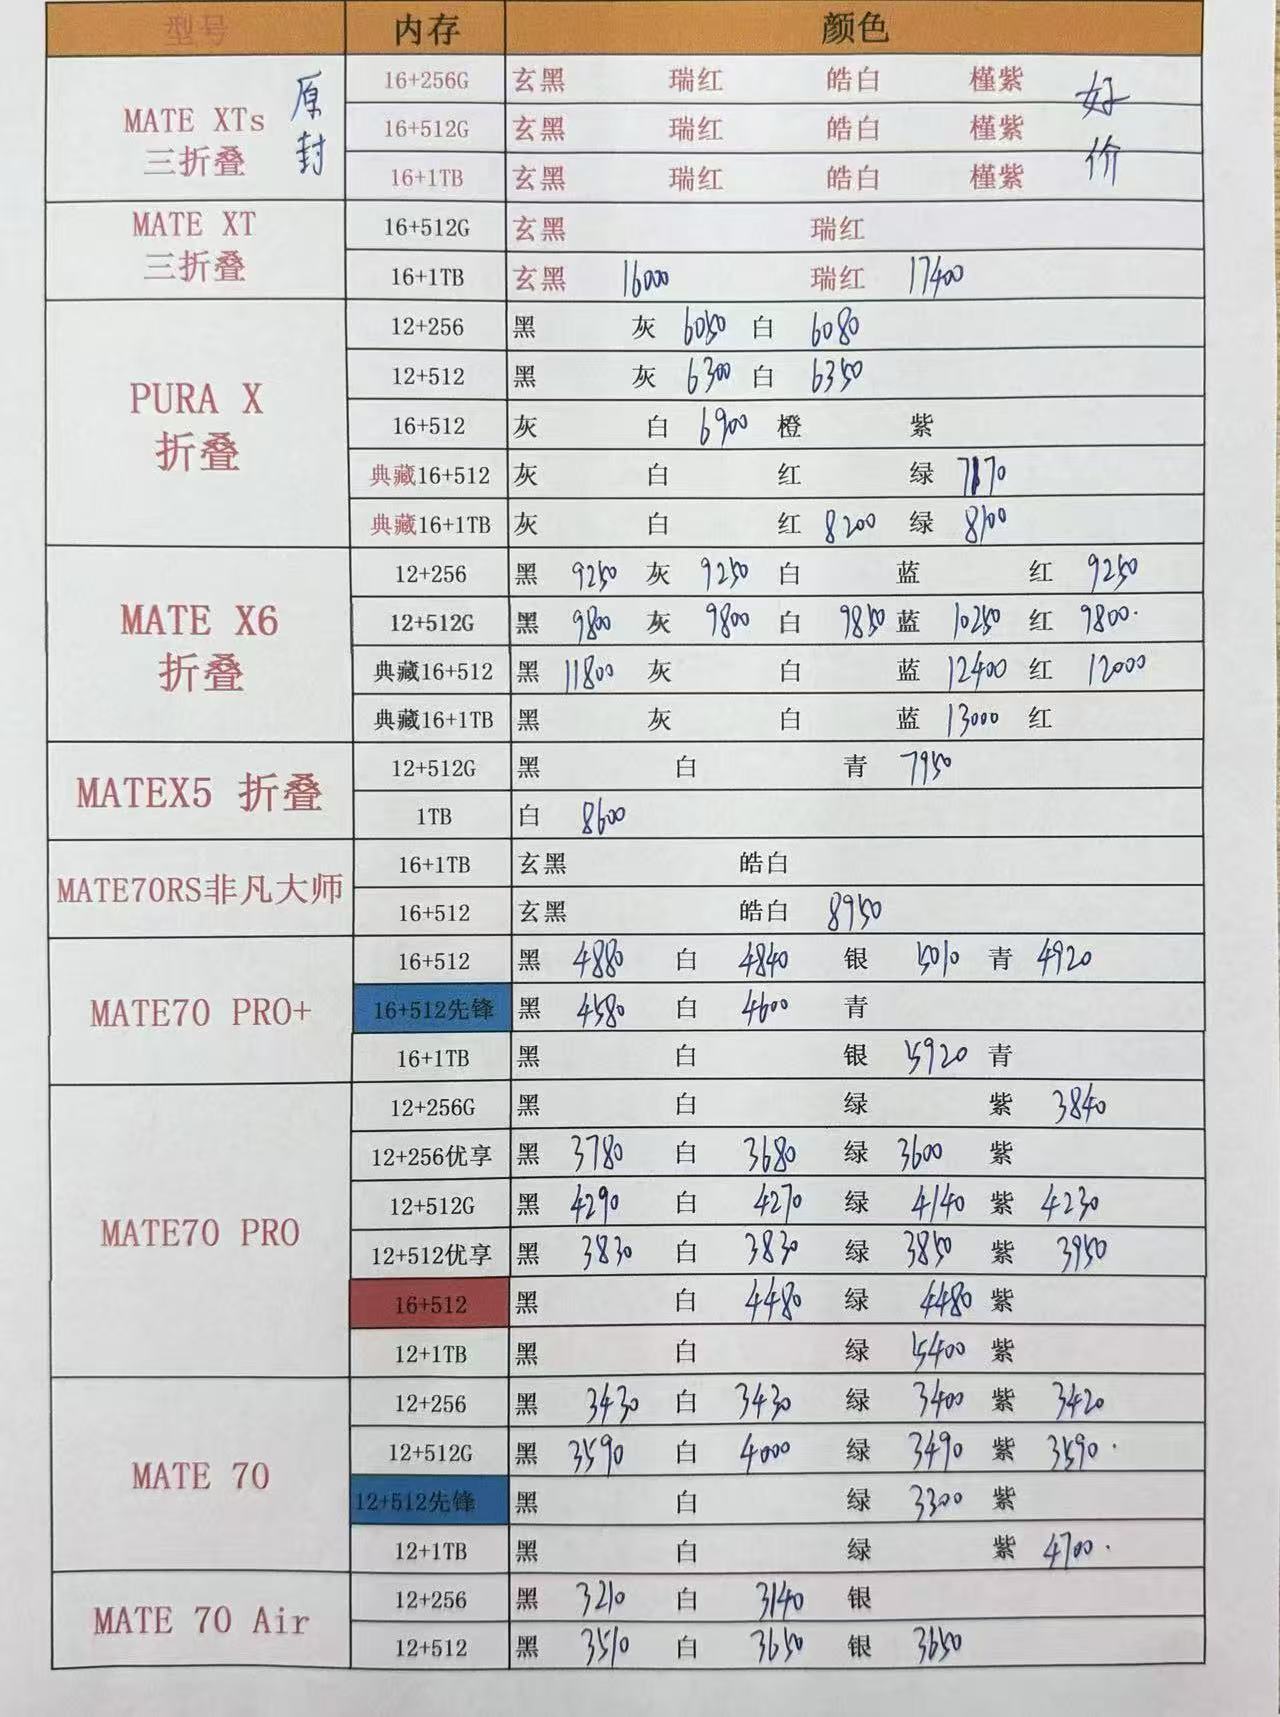 型号 内存 颜色
MATE XTs 三折叠 原封
16+256G 玄黑 瑞红 皓白 槿紫
16+512G 玄黑 瑞红 皓白 槿紫
16+1TB 玄黑 瑞红 皓白 槿紫
好价
MATE XT 三折叠
16+512G 玄黑 瑞红
16+1TB 玄黑 16000 瑞红 17400
PURA X 折叠
12+256 黑 灰 6050 白 6080
12+512 黑 灰 6300 白 6350
16+512 灰 白 6900 橙 紫
典藏16+512 灰 白 红 绿 7170
典藏16+1TB 灰 白 红 8200 绿 8100
MATE X6 折叠
12+256 黑 9250 灰 9250 白 蓝 红 9250
12+512G 黑 9800 灰 9800 白 9850 蓝 10250 红 9800
典藏16+512 黑 11800 灰 白 蓝 12400 红 12000
典藏16+1TB 黑 灰 白 蓝 13000 红
MATEX5 折叠
12+512G 黑 白 青 7950
1TB 白 8600
MATE70RS非凡大师
16+1TB 玄黑 皓白
16+512 玄黑 皓白 8950
MATE70 PRO+
16+512 黑 4880 白 4840 银 5010 青 4920
16+512先锋 黑 4580 白 4600 青
16+1TB 黑 白 银 5920 青
MATE70 PRO
12+256G 黑 白 绿 紫 3840
12+256优享 黑 3780 白 3680 绿 3600 紫
12+512G 黑 4290 白 4270 绿 4140 紫 4230
12+512优享 黑 3830 白 3830 绿 3850 紫 3950
16+512 黑 白 4480 绿 4480 紫
12+1TB 黑 白 绿 5400 紫
MATE 70
12+256 黑 3430 白 3430 绿 3400 紫 3420
12+512G 黑 3590 白 4000 绿 3490 紫 3590
12+512先锋 黑 白 绿 3300 紫
12+1TB 黑 白 绿 紫 4700
MATE 70 Air
12+256 黑 3210 白 3140 银
12+512 黑 3510 白 3650 银 3650